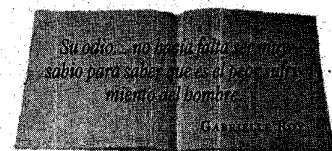 Su odio... no hacía falta ser muy
sabio para saber que es el peor sufri-
miento del hombre.
GABRIELLE ROY